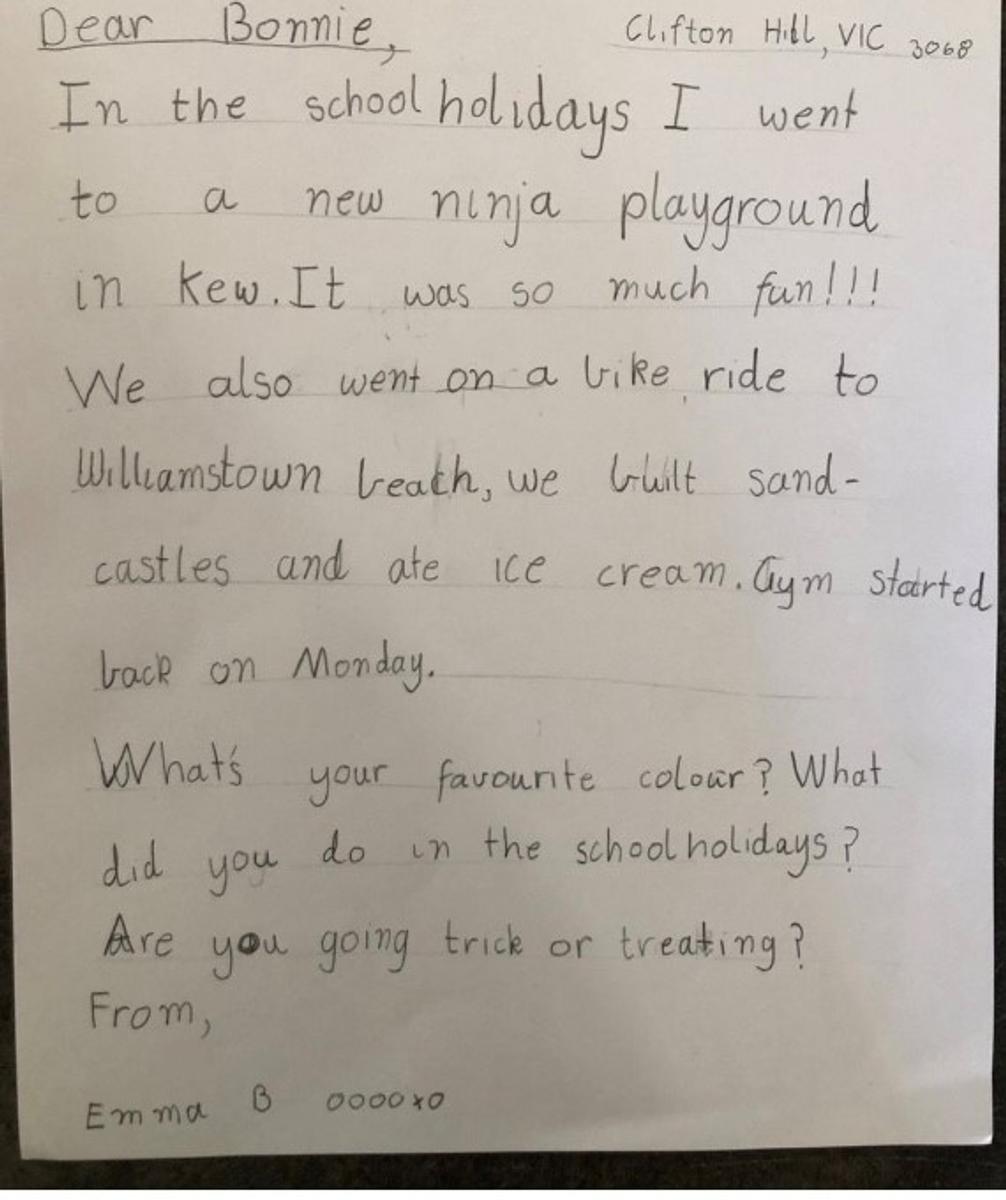 Dear Bonnie, Clifton Hill, VIC 3068
In the school holidays I went
to a new ninja playground
in Kew. It was so much fun!!!
We also went on a bike ride to
Williamstown beach, we built sand-
castles and ate ice cream. Gym started
back on Monday.
What's your favourite colour? What
did you do in the school holidays?
Are you going trick or treating?
From,
Emma B 0000x0